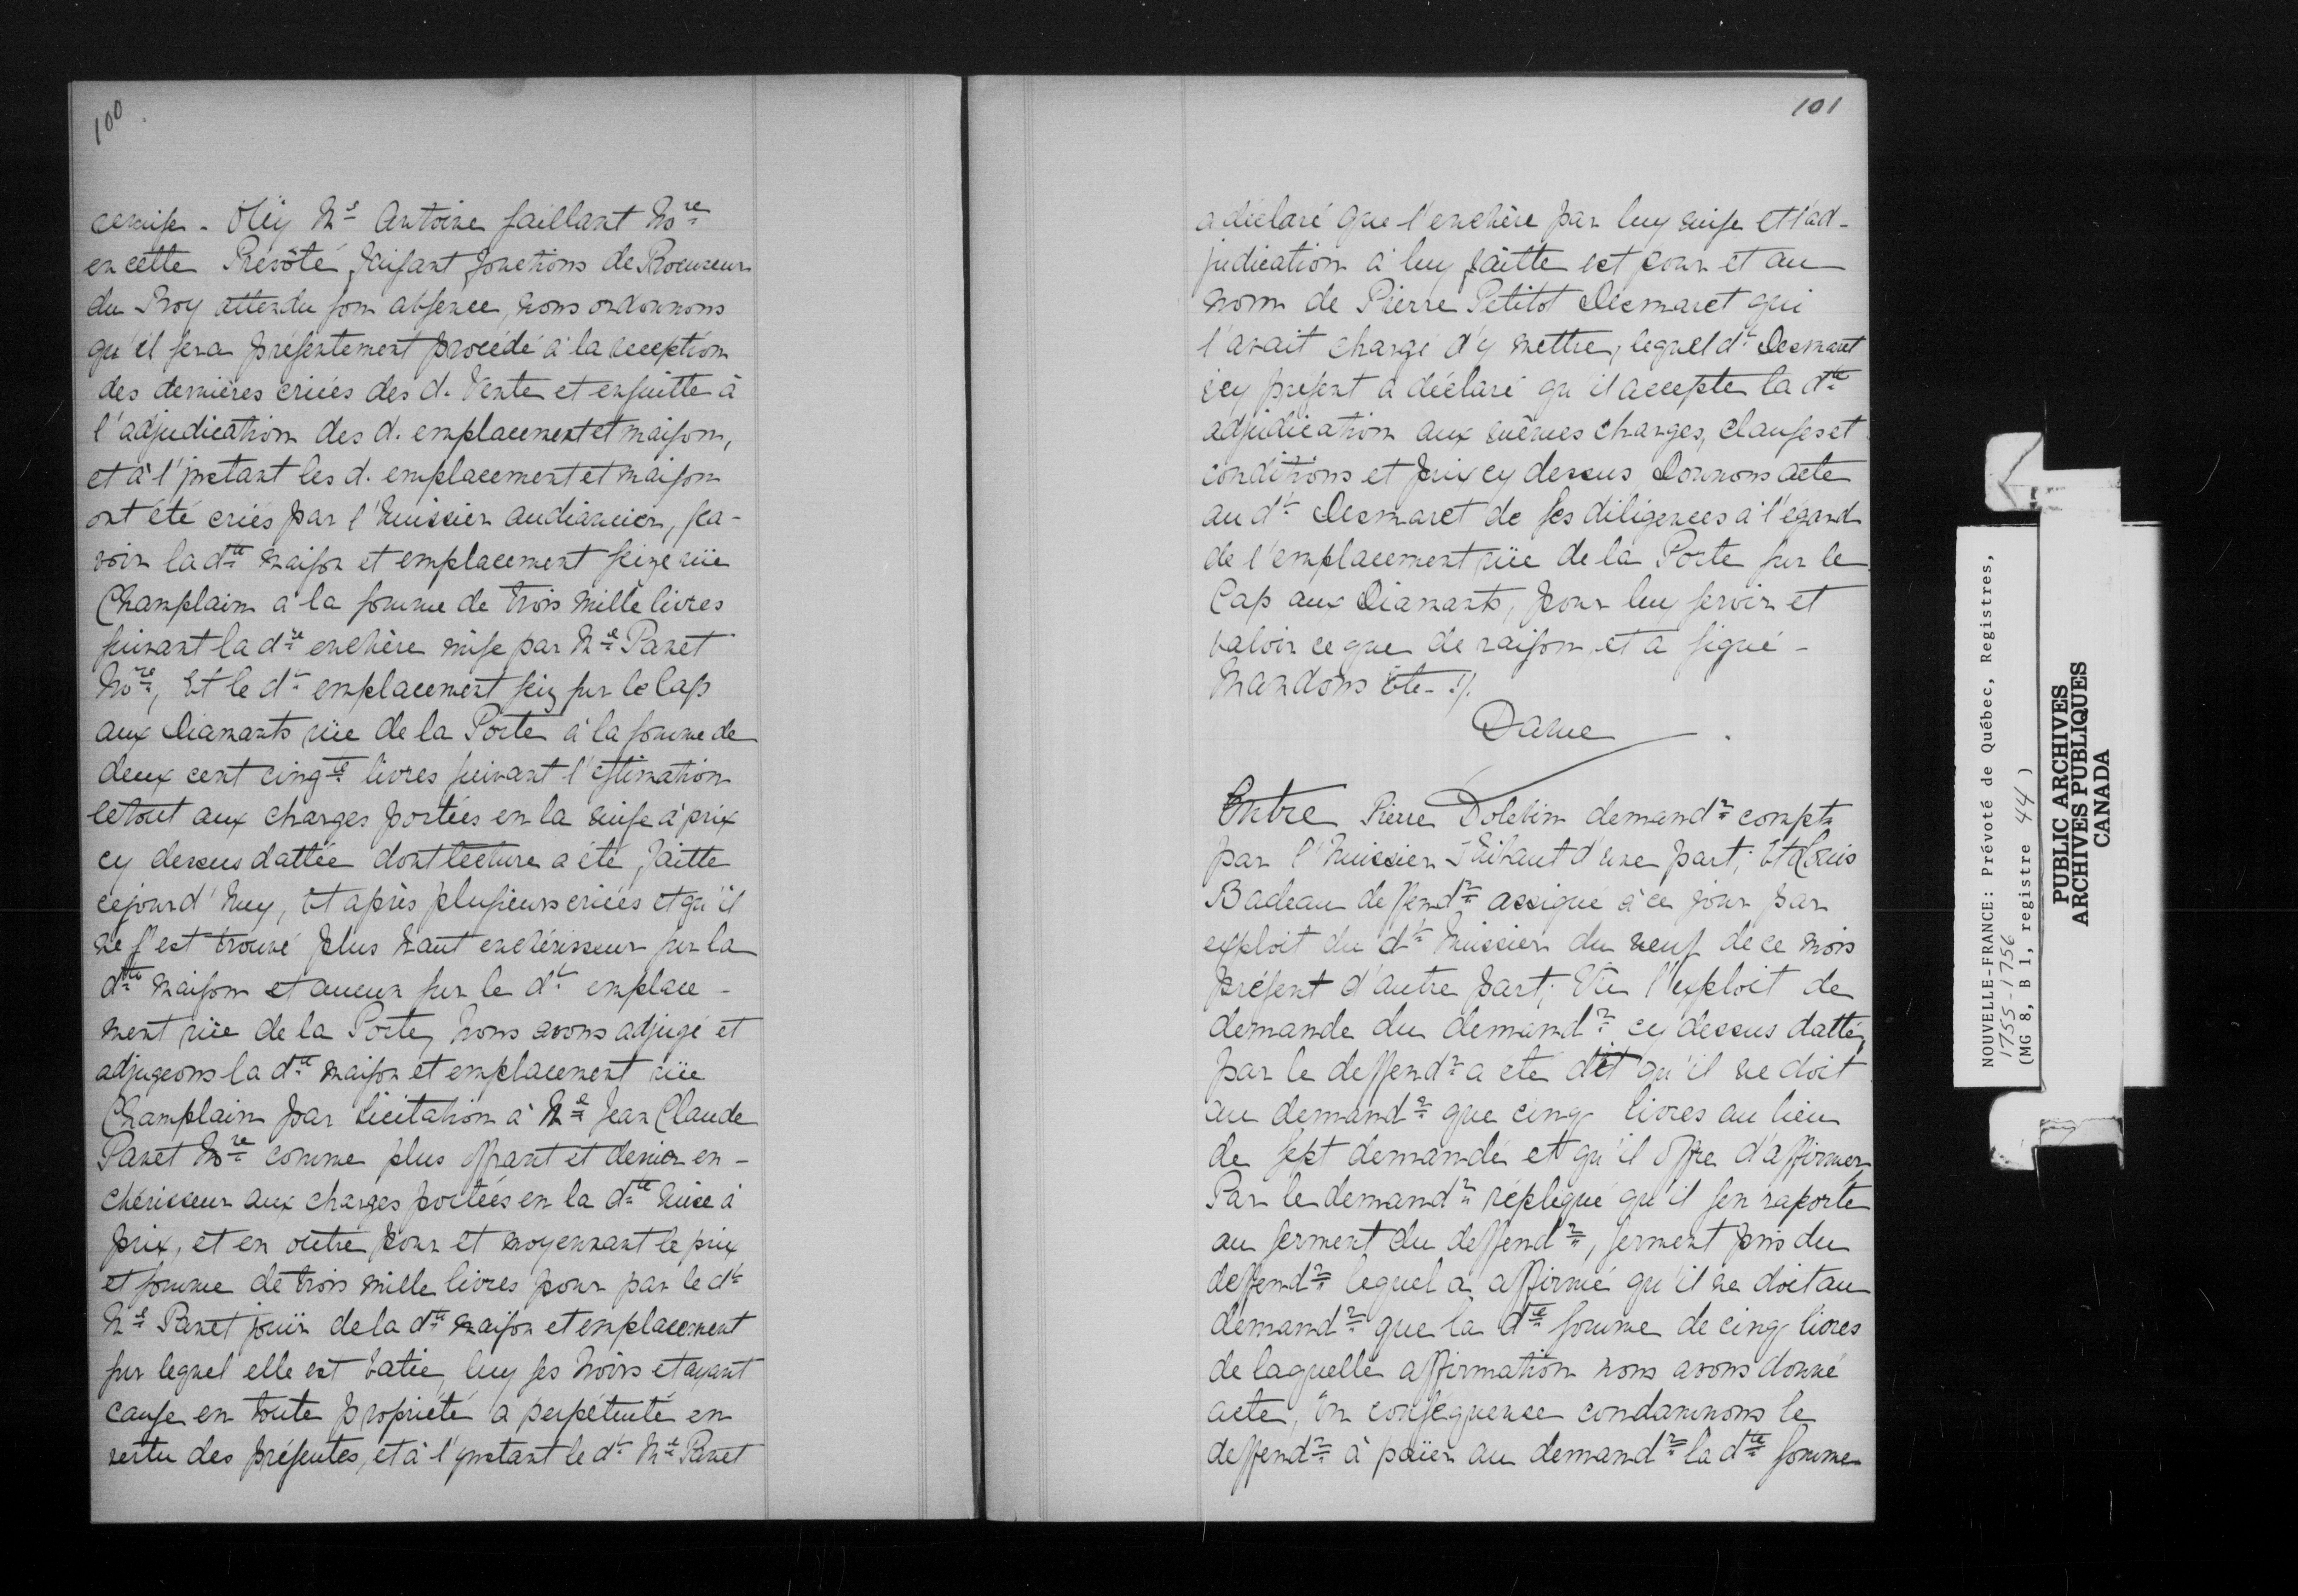 100.
remise. Oüy Me Antoine Saillant Nore
en cette Prévôté faisant fonctions de Procureur
du Roy attendu son absence, nous ordonnons
qu'il sera présentement procédé à la réception
des dernières criées des d. Vente et ensuitte à
l'adjudication des d. emplacement et maison,
et à l'instant les d. emplacement et maison
ont été criés par l'huissier audiancier, sça-
voir la dte maison et emplacement seize rüe
Champlain à la somme de trois mille livres
suivant la dte enchère mise par Me Panet
Nore, Et le dt emplacement seiz sur le Cap
aux Diamants rüe de la Porte à la somme de
deux cent cinqte livres suivant l'estimation
le tout aux charges portées en la mise à prix
cy dessus dattée dont lecture a été faitte
cejourd'huy, Et après plusieurs criées et qu'il
ne s'est trouvé plus haut enchérisseur sur la
dte maison et aucun sur le dt emplace-
ment rüe de la Porte, nous avons adjugé et
adjugeons la dte maison et emplacement rüe
Champlain par licitation à Me Jean Claude
Panet Nore comme plus offrant et denier en-
chérisseur aux charges portées en la dte mise à
prix, et en outre pour et moyennant le prix
et somme de trois mille livres pour par le dt
Me Panet jouir de la dte maison et emplacement
sur lequel elle est batie, luy ses hoirs et ayant
cause en toute propriété à perpétuité en
vertu des présentes, et à l'ynstant le dt Me Panet
101
a déclaré que l'enchère par luy mise et l'ad-
judication à luy faitte est pour et au
nom de Pierre Petitot Desmaret qui
l'avait chargé d'y mettre, lequel dt Desmaret
icy présent a déclaré qu'il accepte la dte
adjudication aux mêmes charges, clauses et
conditions et prix cy dessus Donnons acte
au dt Desmaret de ses diligences à l'égard
de l'emplacement rüe de la Porte sur le
Cap aux Diamants, pour luy servir et
valoir ce que de raison, et a signé -
Mandons Etc. ./.
Daine
Entre Pierre Dolebin demandr compt
par l'huissier Thibaut d'une part; Et Louis
Badeau deffendr assigné à ce jour par
exploit du dt huissier du neuf de ce mois
présent d'autre part; Vu l'exploit de
demande du demandr cy dessus datté,
par le deffendr a été dit qu'il ne doit
au demandr que cinq livres au lieu
de sept demandé et qu'il offre d'affirmer,
Par le demandr répliqué qu'il sen raporte
au serment du deffendr, serment pris du
deffendr lequel a affirmé qu'il ne doit au
demandr que la dte somme de cinq livres
de laquelle affirmation nous avons donné
acte, En conséquence condamnons le
deffendr à païer au demandr la dte somme
NOUVELLE-FRANCE: Prévoté de Québec, Registres,
1755-1756
(MG 8, B 1, registre 44)
PUBLIC ARCHIVES
ARCHIVES PUBLIQUES
CANADA